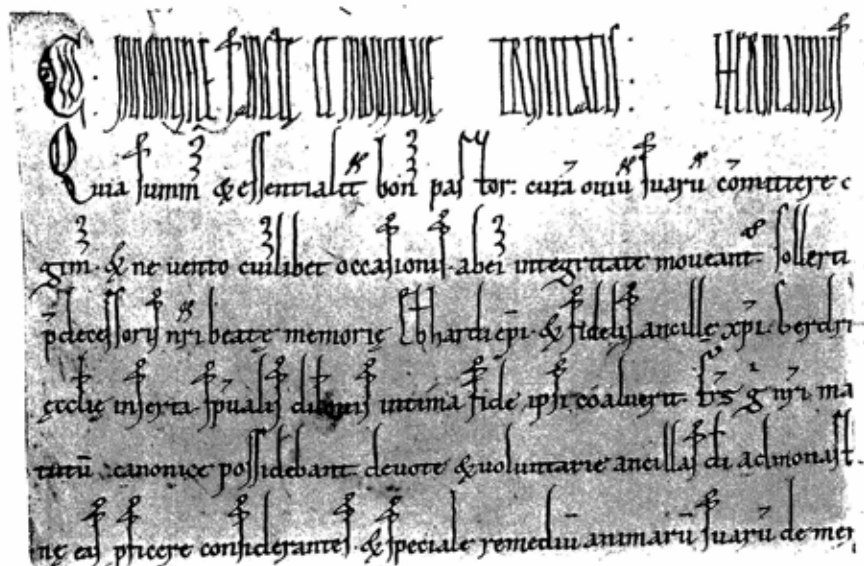 IN NOMINE SANCTE ET INDIVIDUE TRINITATIS: HERIMANNUS
Quia summi & essentialit boni pastor: curā oviū suarū cōmittere c
gim. & ne vento cuilibet occasionis. ab ei integritate moveant. sollerti
p̄decessoris nr̄i beatę memorię Ebhardi ep̄i. & fidelis ancillę xp̄i. berdri
ęcclię inserta. sp̄ualis intima fide ipsi coaluert. g nr̄i. ma
tutū canonice possidebant. devote & voluntarie ancillas dī ad monast.
nę eas pficere considerantes. & speciale remediū animarū suarū de mer